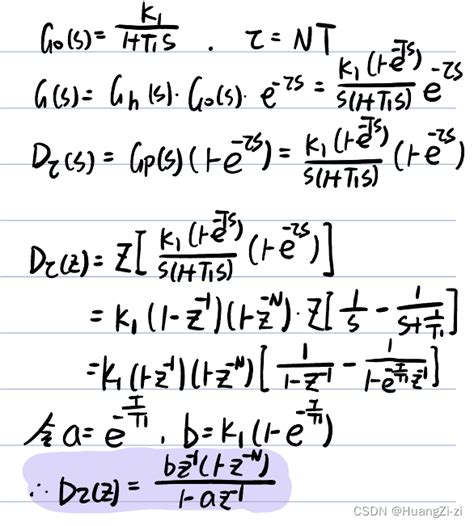 G₀(s) = K₁/(1+T₁s) . τ = NT
G(s) = Gₕ(s)·G₀(s)·e^(-τs) = K₁(1-e^(-Ts))/(s(1+T₁s)) e^(-τs)
Dτ(s) = Gp(s)(1-e^(-τs)) = K₁(1-e^(-Ts))/(s(1+T₁s)) (1-e^(-τs))
Dτ(z) = Z[K₁(1-e^(-Ts))/(s(1+T₁s)) (1-e^(-τs))]
= K₁(1-z⁻¹)(1-z^(-N))·Z[1/s - 1/(s+1/T₁)]
= K₁(1-z⁻¹)(1-z^(-N))[1/(1-z⁻¹) - 1/(1-e^(-T/T₁)z⁻¹)]
令 a = e^(-T/T₁) , b = K₁(1-e^(-T/T₁))
∴ Dτ(z) = bz⁻¹(1-z^(-N))/(1-az⁻¹)
CSDN @HuangZi-zi